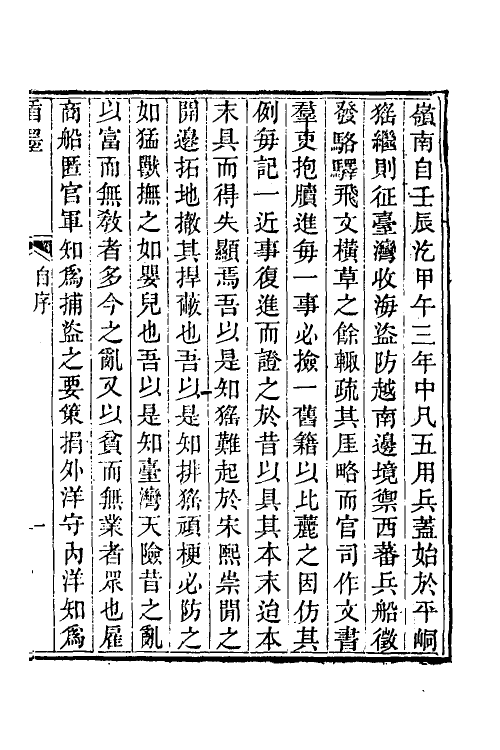 嶺南自壬辰迄甲午三年中凡五用兵蓋始於平峒
猺繼則征臺灣收海盜防越南邊境禦西蕃兵船徵
發駱驛飛文橫草之餘輙疏其厓略而官司作文書
羣吏抱牘進每一事必撿一舊籍以比麗之因仿其
例每記一近事復進而證之於昔以具其本末迨本
末具而得失顯焉吾以是知猺難起於宋熙崇開之
開邊拓地撤其捍蔽也吾以是知排猺頑梗必防之
如猛獸撫之如嬰兒也吾以是知臺灣天險昔之亂
以富而無敎者多今之亂又以貧而無業者眾也雇
商船匿官軍知爲捕盜之要策捐外洋守內洋知爲
盾墨
自序
一